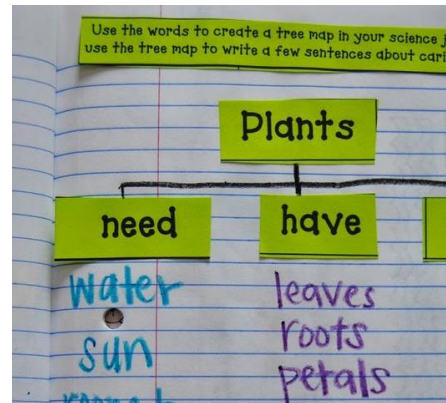 Use the words to create a tree map in your science
use the tree map to write a few sentences about
Plants
need
have
water
leaves
sun
roots
petals